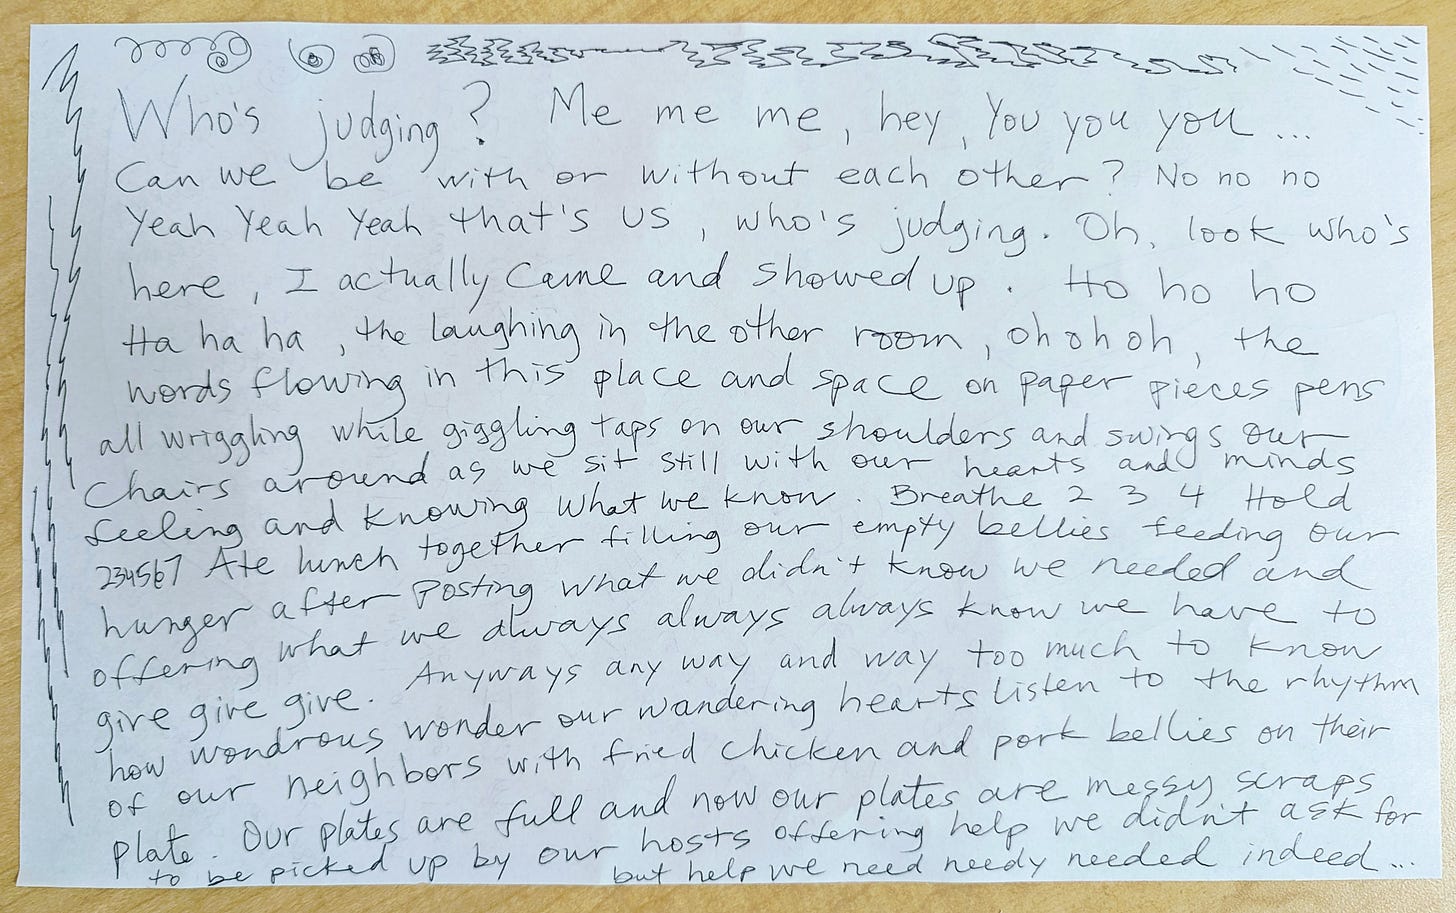 Who's judging? Me me me, hey, You you you...
Can we be with or without each other? No no no
Yeah Yeah Yeah that's us, who's judging. Oh, look who's
here, I actually came and showed up. Ho ho ho
Ha ha ha, the laughing in the other room, oh oh oh, the
words flowing in this place and space on paper pieces pens
all wriggling while giggling taps on our shoulders and swings our
chairs around as we sit still with our hearts and minds
feeling and knowing what we know. Breathe 2 3 4 Hold
234567 Ate lunch together filling our empty bellies feeding our
hunger after posting what we didn't know we needed and
offering what we always always always know we have to
give give give. Anyways any way and way too much to know
how wondrous wonder our wandering hearts listen to the rhythm
of our neighbors with fried chicken and pork bellies on their
plate. Our plates are full and now our plates are messy scraps
to be picked up by our hosts offering help we didn't ask for
but help we need needy needed indeed...